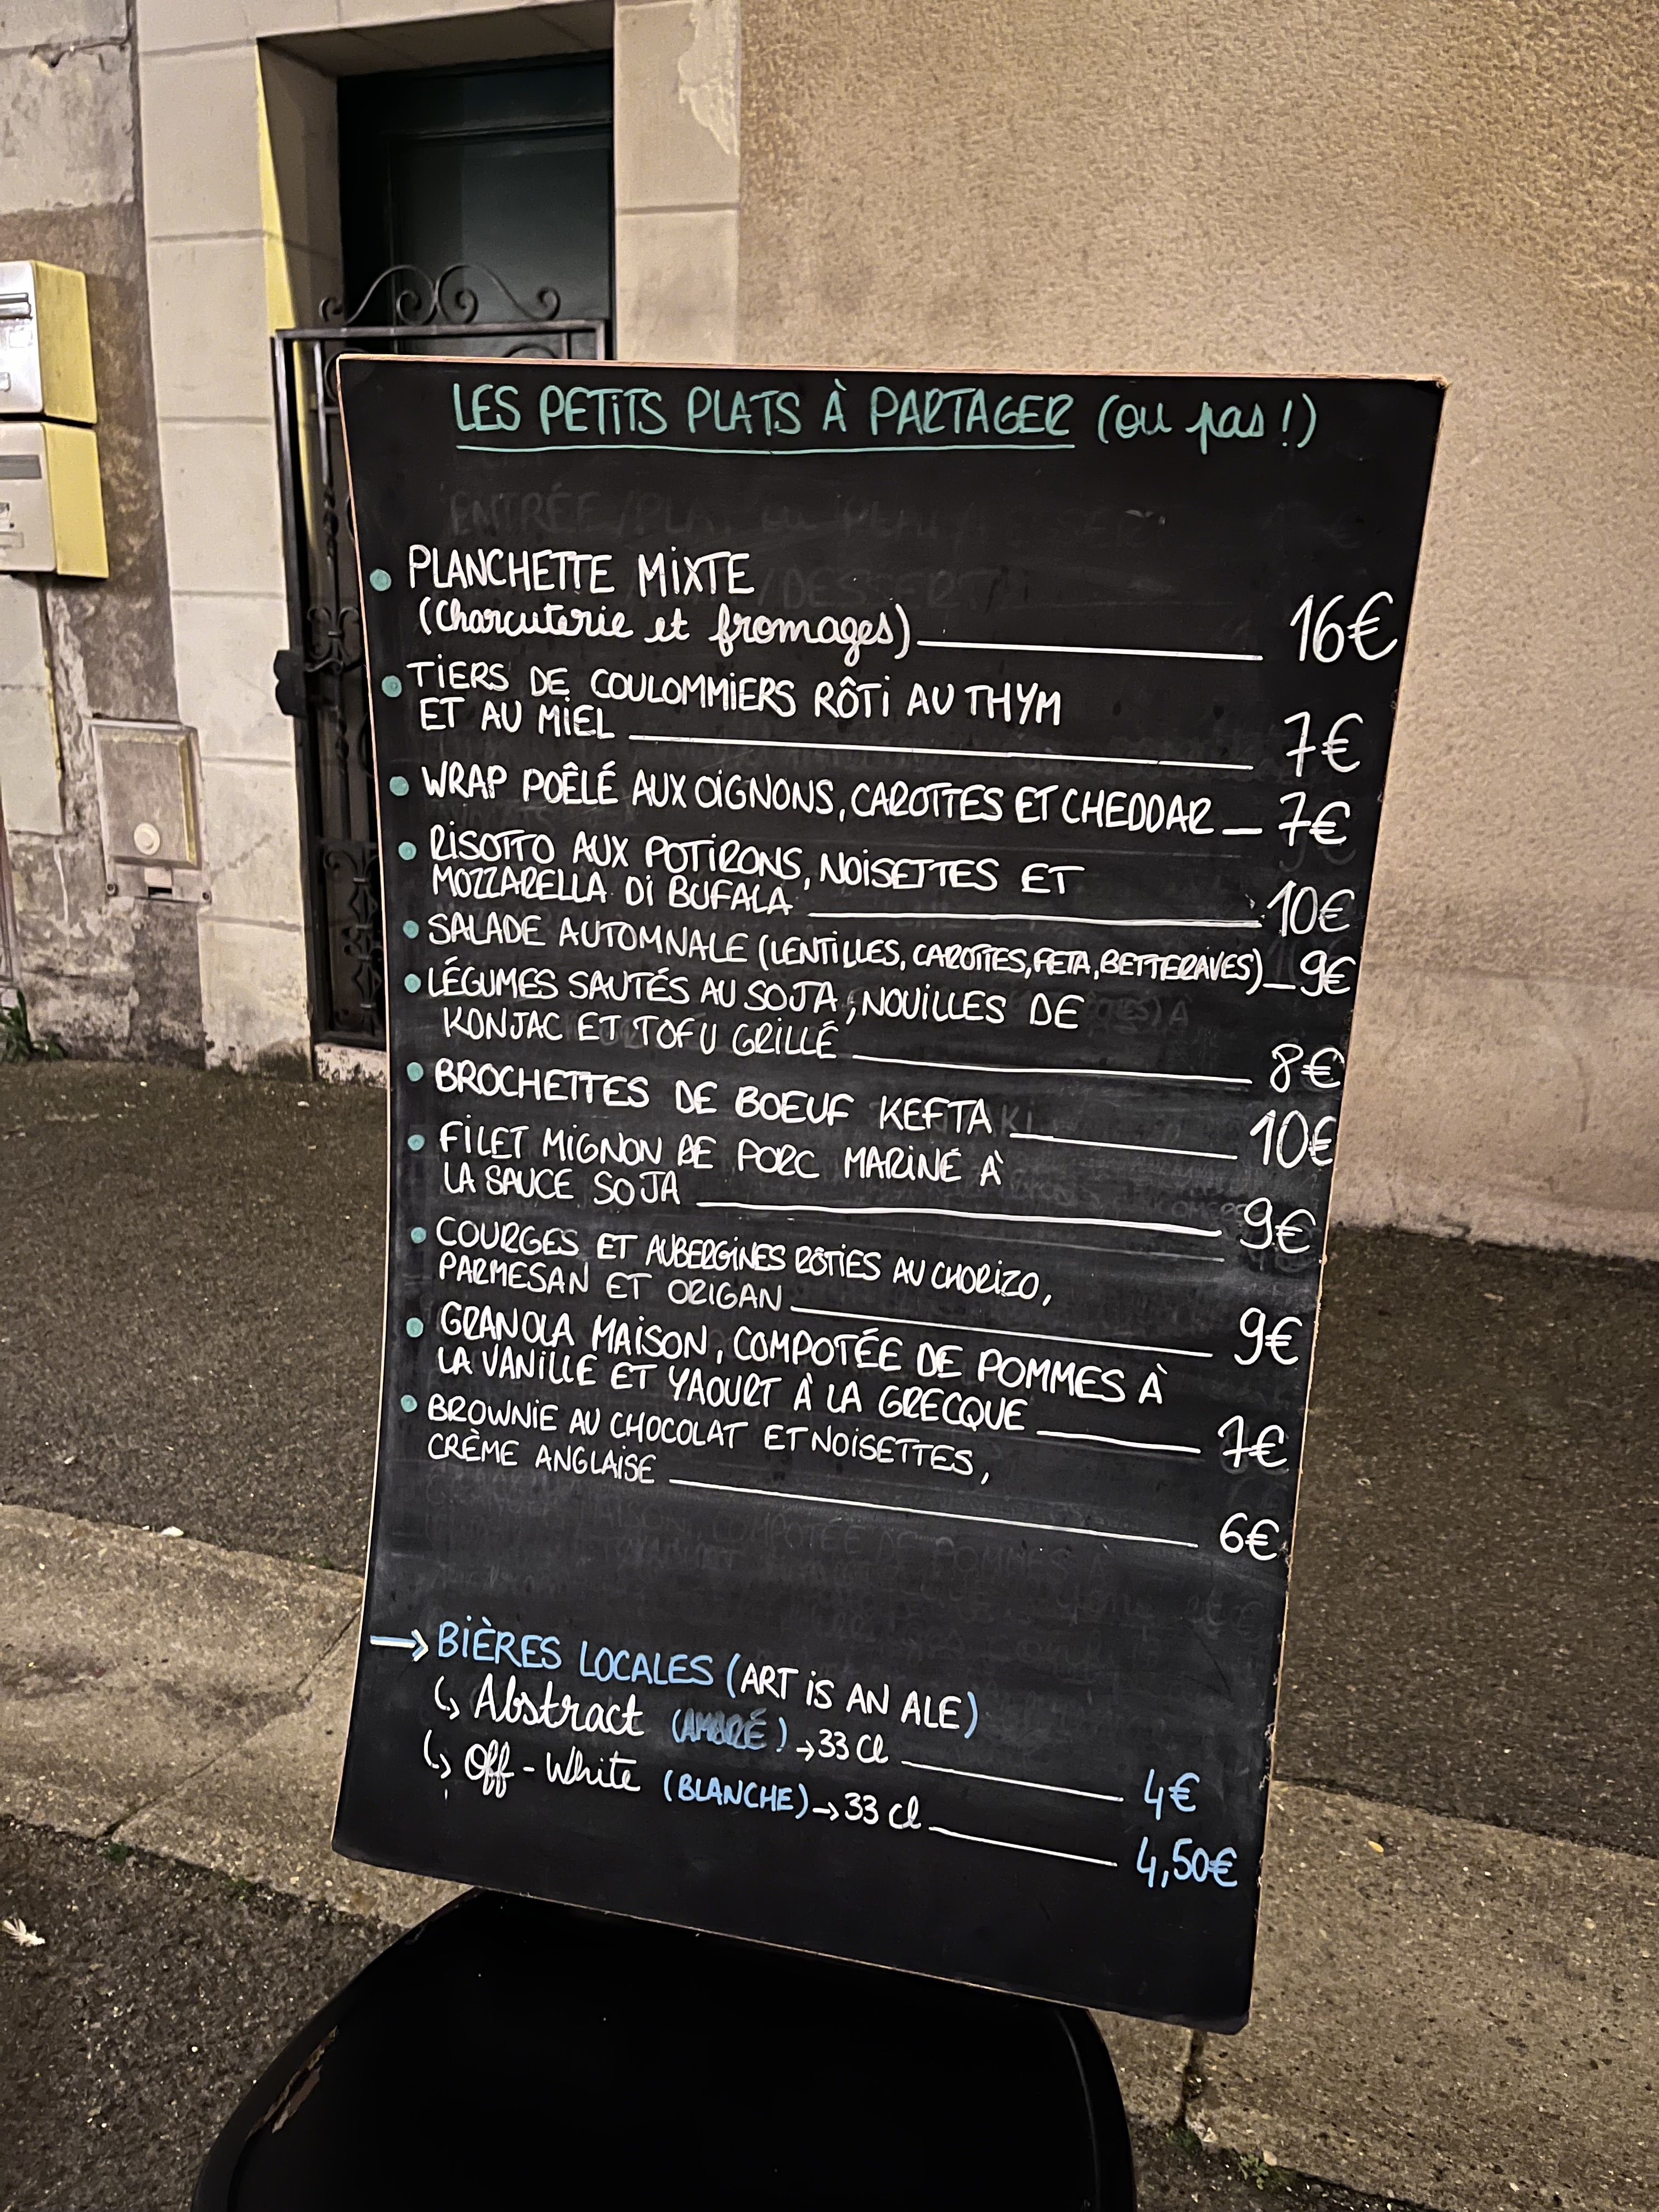 LES PETITS PLATS À PARTAGER (ou pas !)
PLANCHETTE MIXTE
(Charcuterie et fromages) 16€
TIERS DE COULOMMIERS RÔTI AU THYM
ET AU MIEL 7€
WRAP POÊLÉ AUX OIGNONS, CAROTTES ET CHEDDAR 7€
RISOTTO AUX POTIRONS, NOISETTES ET
MOZZARELLA DI BUFALA 10€
SALADE AUTOMNALE (LENTILLES, CAROTTES, FETA, BETTERAVES) 9€
LÉGUMES SAUTÉS AU SOJA, NOUILLES DE
KONJAC ET TOFU GRILLÉ 8€
BROCHETTES DE BOEUF KEFTA 10€
FILET MIGNON DE PORC MARINÉ À
LA SAUCE SOJA 9€
COURGES ET AUBERGINES RÔTIES AU CHORIZO,
PARMESAN ET ORIGAN 9€
GRANOLA MAISON, COMPOTÉE DE POMMES À
LA VANILLE ET YAOURT À LA GRECQUE 7€
BROWNIE AU CHOCOLAT ET NOISETTES,
CRÈME ANGLAISE 6€
→ BIÈRES LOCALES (ART IS AN ALE)
↳ Abstract (AMBRÉ) → 33 Cl 4€
↳ Off-White (BLANCHE) → 33 Cl 4,50€